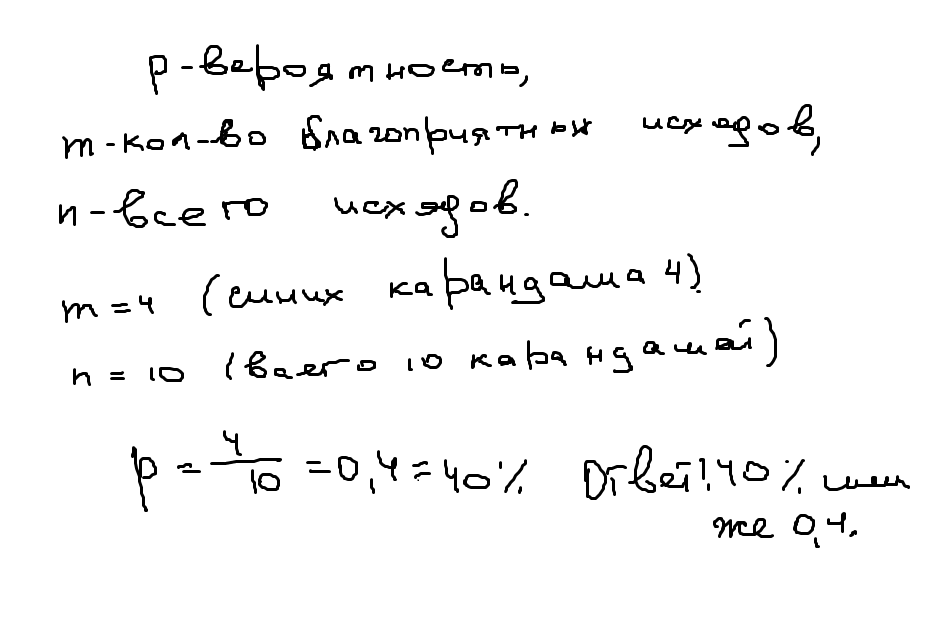 p-вероятность,
m-кол-во благоприятных исходов,
n-всего исходов.
m=4 (синих карандаша 4)
n = 10 (всего 10 карандашей)
p = 4/10 = 0,4 = 40% Ответ: 40% или
же 0,4.